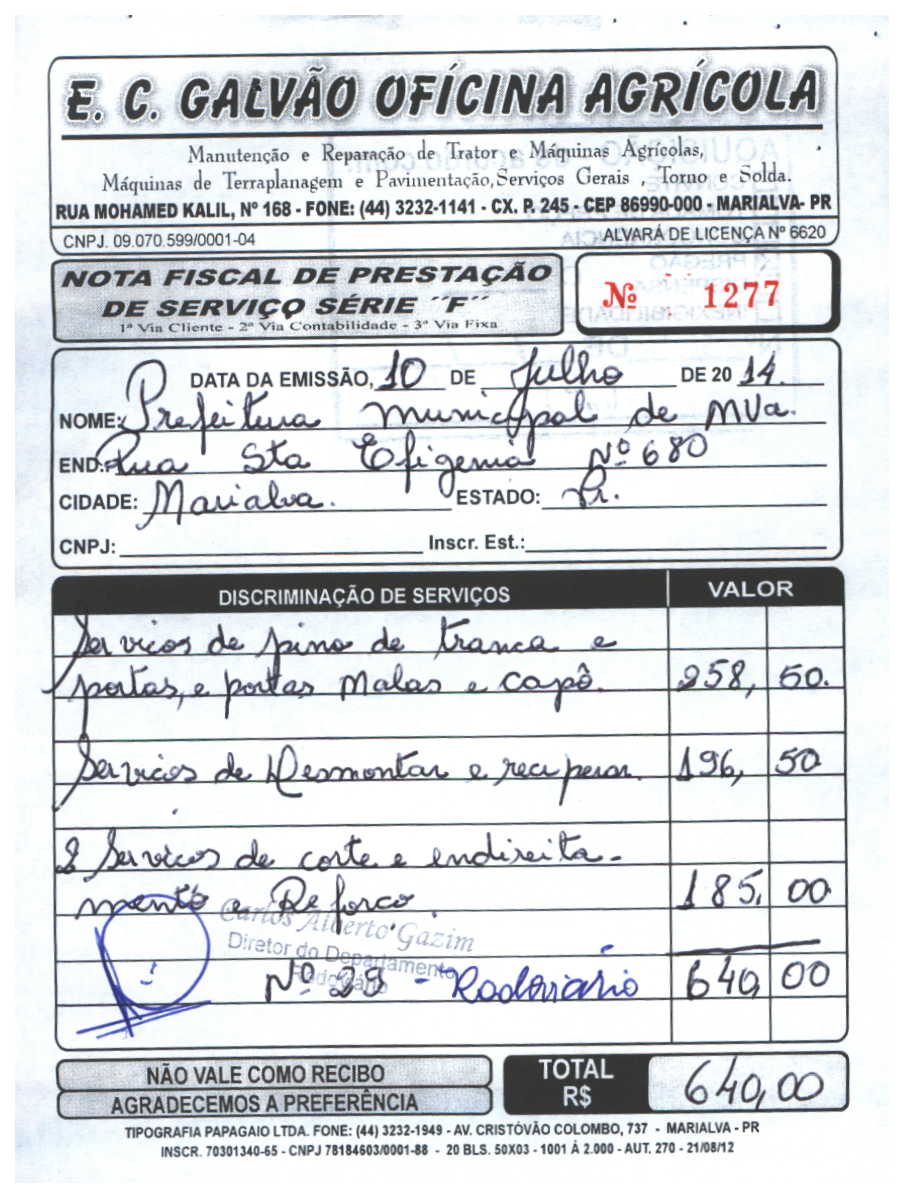 E. C. GALVÃO OFÍCINA AGRÍCOLA
Manutenção e Reparação de Trator e Máquinas Agrícolas,
Máquinas de Terraplanagem e Pavimentação, Serviços Gerais , Torno e Solda.
RUA MOHAMED KALIL, Nº 168 - FONE: (44) 3232-1141 - CX. P. 245 - CEP 86990-000 - MARIALVA- PR
CNPJ. 09.070.599/0001-04 ALVARÁ DE LICENÇA Nº 6620
NOTA FISCAL DE PRESTAÇÃO
DE SERVIÇO SÉRIE "F"
1ª Via Cliente - 2ª Via Contabilidade - 3ª Via Fixa
Nº 1277
DATA DA EMISSÃO, 10 DE Julho DE 20 14.
NOME: Prefeitura municipal de MVa.
END: Rua Sta Efigemia Nº 680
CIDADE: Marialva. ESTADO: Pr.
CNPJ: Inscr. Est.:
DISCRIMINAÇÃO DE SERVIÇOS VALOR
Servicos de pino de tranca e
portas, e portas Malas e capô. 258, 50.
Servicos de Desmontar e recuperar. 196, 50
2 Servicos de corte e endireita-
mento e Reforco. 185, 00
Carlos Alberto Gazim
Diretor do Departamento
Rodoviário
Nº 29 - Rodoviario 640, 00
NÃO VALE COMO RECIBO
AGRADECEMOS A PREFERÊNCIA
TOTAL
R$ 640,00
TIPOGRAFIA PAPAGAIO LTDA. FONE: (44) 3232-1949 - AV. CRISTÓVÃO COLOMBO, 737 - MARIALVA - PR
INSCR. 70301340-65 - CNPJ 78184603/0001-88 - 20 BLS. 50X03 - 1001 À 2.000 - AUT. 270 - 21/08/12